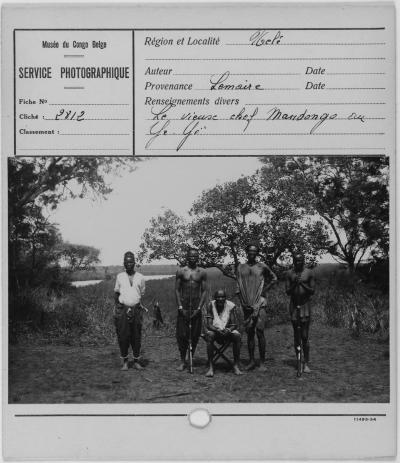 Musée du Congo Belge
SERVICE PHOTOGRAPHIQUE
Fiche No
Cliché : 2812
Classement :
Région et Localité Uelé
Auteur Date
Provenance Lemaire Date
Renseignements divers
Le vieux chef Mandongo au
11493-34